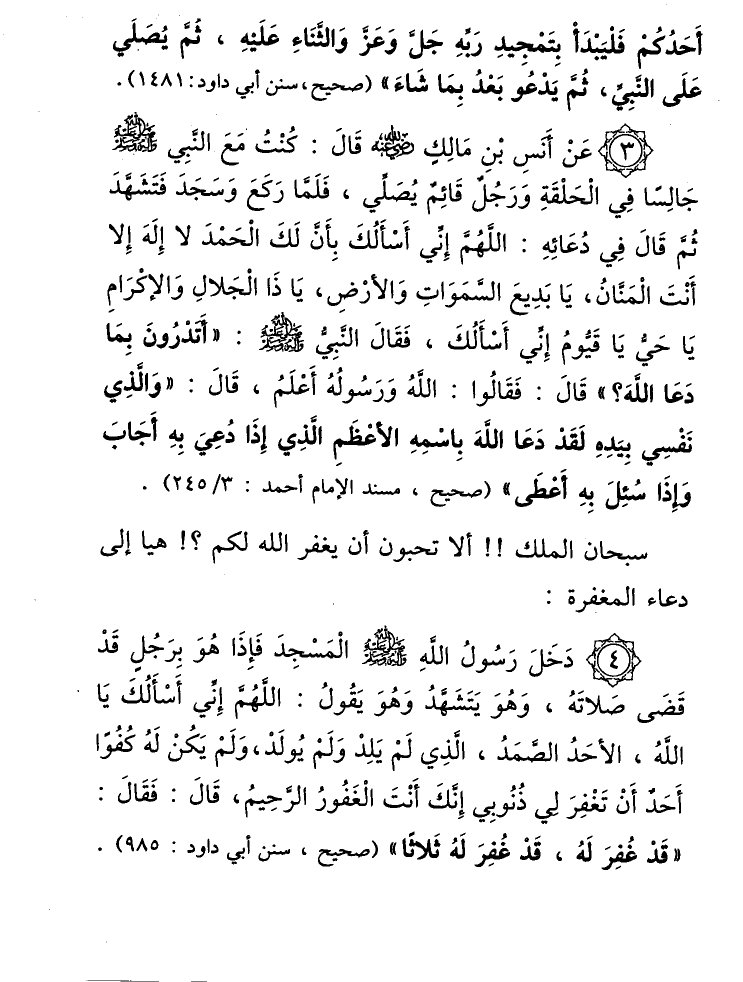 أَحَدُكُمْ فَلْيَبْدَأْ بِتَمْجِيدِ رَبِّهِ جَلَّ وَعَزَّ وَالثَّنَاءِ عَلَيْهِ ، ثُمَّ يُصَلِّي
عَلَى النَّبِيِّ، ثُمَّ يَدْعُو بَعْدُ بِمَا شَاءَ» (صحيح،سنن أبي داود:١٤٨١).
٣ عَنْ أَنَسِ بْنِ مَالِكٍ رضي الله عنه قَالَ : كُنْتُ مَعَ النَّبِي ﷺ
جَالِسًا فِي الْحَلْقَةِ وَرَجُلٌ قَائِمٌ يُصَلِّي ، فَلَمَّا رَكَعَ وَسَجَدَ فَتَشَهَّدَ
ثُمَّ قَالَ فِي دُعَائِهِ : اللَّهُمَّ إِنِّي أَسْأَلُكَ بِأَنَّ لَكَ الْحَمْدَ لا إِلَهَ إِلا
أَنْتَ الْمَنَّانُ، يَا بَدِيعَ السَّمَوَاتِ وَالأَرْضِ، يَا ذَا الْجَلالِ وَالإِكْرَامِ
يَا حَيُّ يَا قَيُّومُ إِنِّي أَسْأَلُكَ ، فَقَالَ النَّبِيُّ ﷺ : «أَتَدْرُونَ بِمَا
دَعَا اللَّهَ؟» قَالَ : فَقَالُوا : اللَّهُ وَرَسُولُهُ أَعْلَمُ ، قَالَ : «وَالَّذِي
نَفْسِي بِيَدِهِ لَقَدْ دَعَا اللَّهَ بِاسْمِهِ الأَعْظَمِ الَّذِي إِذَا دُعِيَ بِهِ أَجَابَ
وَإِذَا سُئِلَ بِهِ أَعْطَى» (صحيح ، مسند الإمام أحمد : ٢٤٥/٣) .
سبحان الملك !! ألا تحبون أن يغفر الله لكم ؟! هيا إلى
دعاء المغفرة :
٤ دَخَلَ رَسُولُ اللَّهِ ﷺ الْمَسْجِدَ فَإِذَا هُوَ بِرَجُلٍ قَدْ
قَضَى صَلاتَهُ ، وَهُوَ يَتَشَهَّدُ وَهُوَ يَقُولُ : اللَّهُمَّ إِنِّي أَسْأَلُكَ يَا
اللَّهُ ، الأَحَدُ الصَّمَدُ ، الَّذِي لَمْ يَلِدْ وَلَمْ يُولَدْ،وَلَمْ يَكُنْ لَهُ كُفُوًا
أَحَدٌ أَنْ تَغْفِرَ لِي ذُنُوبِي إِنَّكَ أَنْتَ الْغَفُورُ الرَّحِيمُ، قَالَ : فَقَالَ :
«قَدْ غُفِرَ لَهُ ، قَدْ غُفِرَ لَهُ ثَلاثًا» (صحيح ، سنن أبي داود : ٩٨٥) .